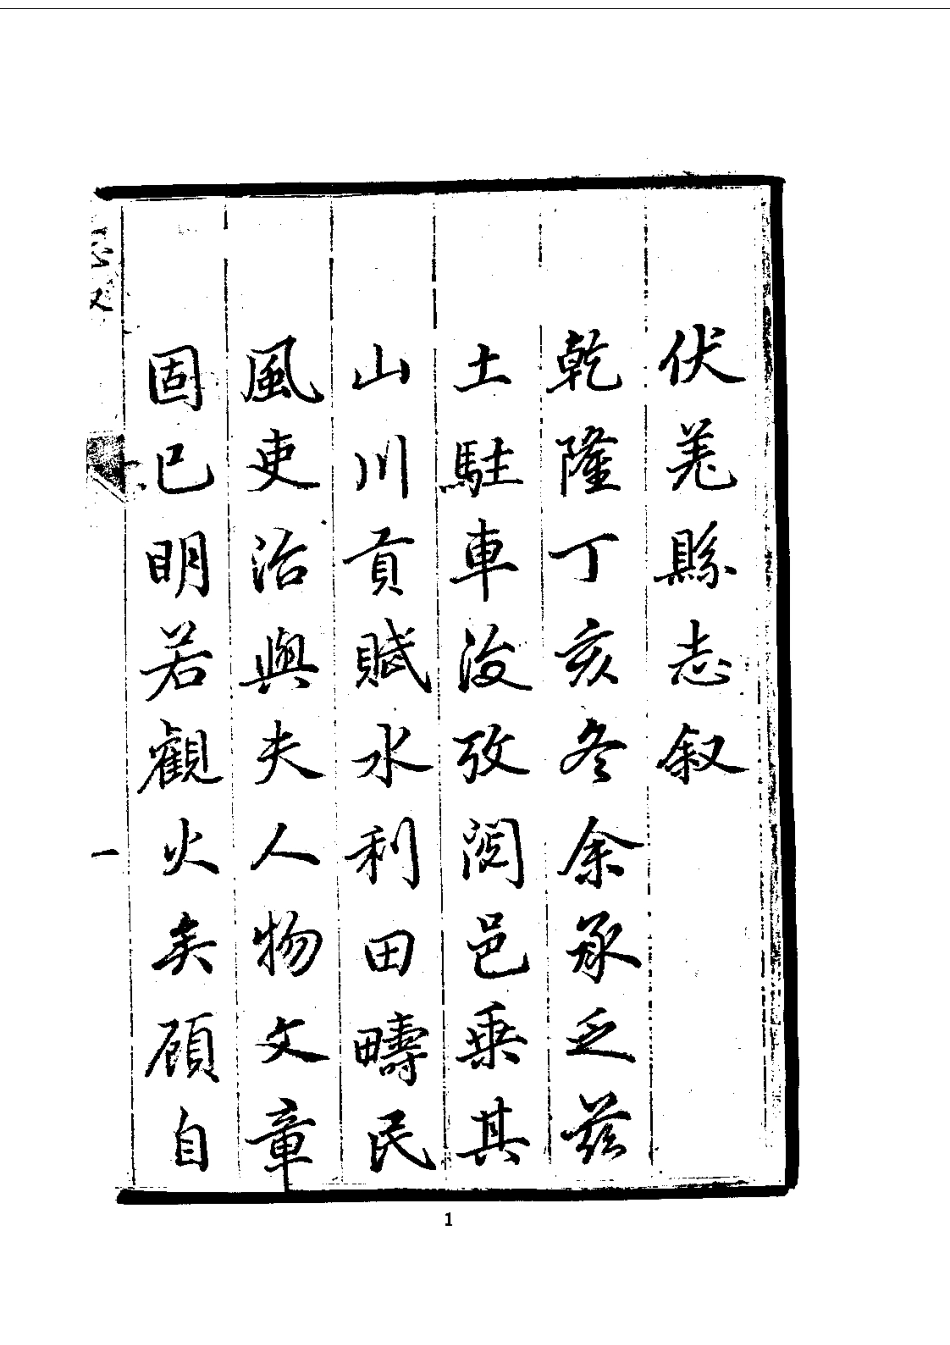 伏羌縣志叙
乾隆丁亥冬余承乏兹
土駐車后攷閲邑乗其
山川貢賦水利田疇民
風吏治與夫人物文章
固已明若觀火矣顧自
志叙
一
1